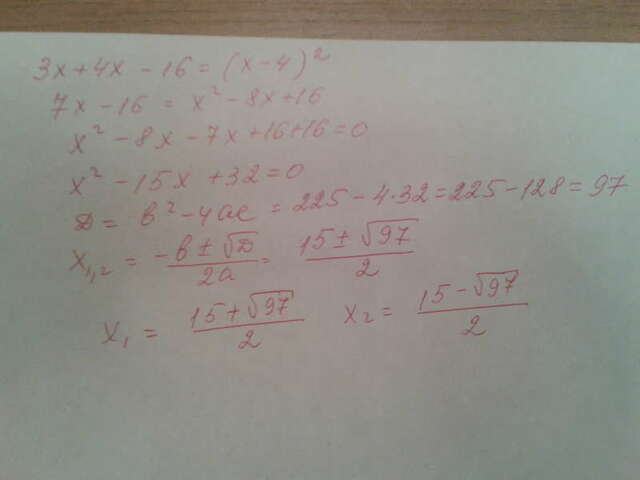 3x+4x-16=(x-4)²
7x-16=x²-8x+16
x²-8x-7x+16+16=0
x²-15x+32=0
Д=b²-4ac=225-4·32=225-128=97
x₁,₂=(-b±√Д)/2a=(15±√97)/2
x₁=(15+√97)/2 x₂=(15-√97)/2